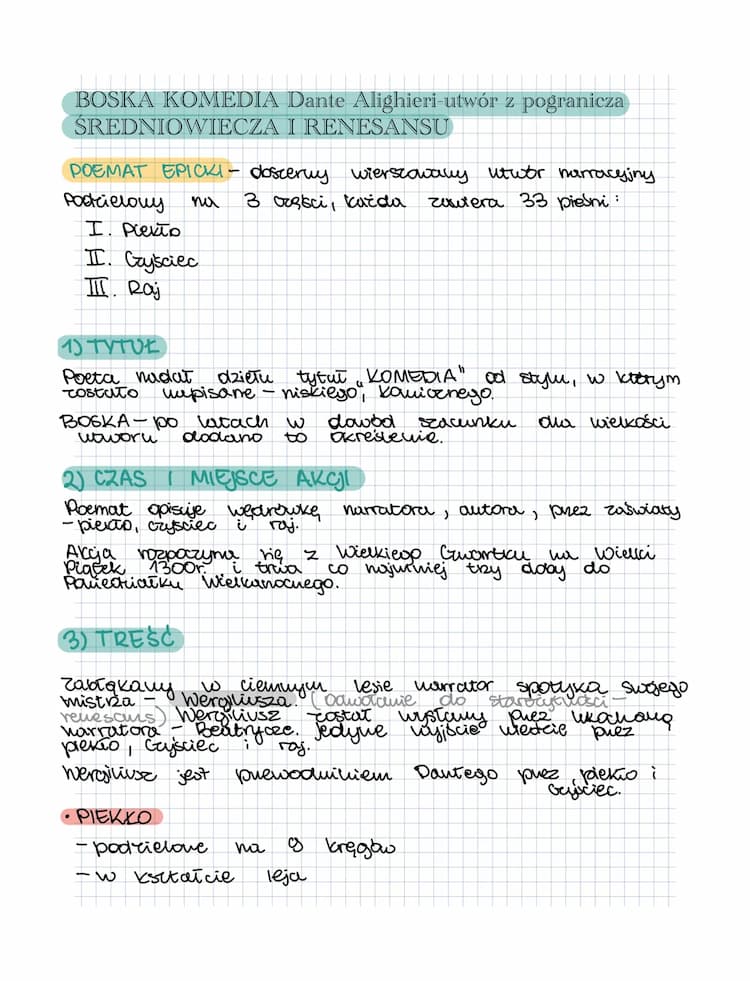 BOSKA KOMEDIA Dante Alighieri-utwór z pogranicza
ŚREDNIOWIECZA I RENESANSU
POEMAT EPICKI - obszerny wierszowany utwór narracyjny
Podzielony na 3 części, każda zawiera 33 pieśni:
I. Piekło
II. Czyściec
III. Raj
1) TYTUŁ
Poeta nadał dziełu tytuł „KOMEDIA" od stylu, w którym
zostało napisane - niskiego, komicznego.
BOSKA - po latach w dowód szacunku dla wielkości
utworu dodano to określenie.
2) CZAS I MIEJSCE AKCJI
Poemat opisuje wędrówkę narratora, autora, przez zaświaty
- piekło, czyściec i raj.
Akcja rozpoczyna się z Wielkiego Czwartku na Wielki
Piątek 1300r. i trwa co najmniej trzy doby do
Poniedziałku Wielkanocnego.
3) TREŚĆ
Zabłąkany w ciemnym lesie narrator spotyka swojego
mistrza - Wergiliusza. (odwołanie do starożytności -
renesans) Wergiliusz został wysłany przez ukochaną
narratora - Beatrycze. Jedyne wyjście wiedzie przez
piekło, czyściec i raj.
Wergiliusz jest przewodnikiem Dantego przez piekło i
czyściec.
• PIEKŁO
- podzielone na 9 kręgów
- w kształcie leja